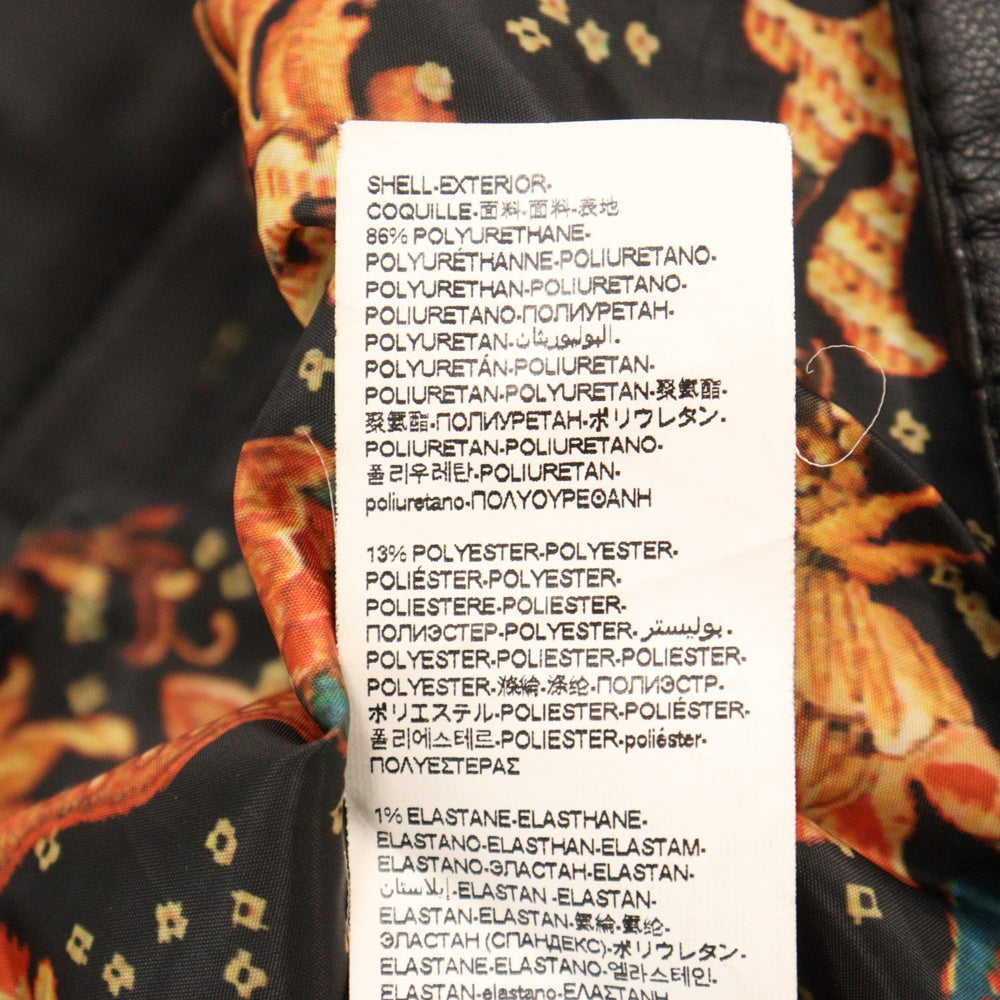 SHELL-EXTERIOR-
COQUILLE-面料-面料-表地
86% POLYURETHANE-
POLYURÉTHANNE-POLIURETANO-
POLYURETHAN-POLIURETANO-
POLIURETANO-ПОЛИУРЕТАН-
POLYURETAN-البوليوريثان-
POLYURETÁN-POLIURETAN-
POLIURETAN-POLYURETAN-聚氨酯-
聚氨酯-ПОЛИУРЕТАН-ポリウレタン-
POLIURETAN-POLIURETANO-
폴리우레탄-POLIURETAN-
poliuretano-ΠΟΛΥΟΥΡΕΘΑΝΗ
13% POLYESTER-POLYESTER-
POLIÉSTER-POLYESTER-
POLIESTERE-POLIESTER-
ПОЛИЭСТЕР-POLYESTER-بوليستر-
POLYESTER-POLIESTER-POLIESTER-
POLYESTER-滌綸-涤纶-ПОЛИЭСТР-
ポリエステル-POLIESTER-POLIÉSTER-
폴리에스테르-POLIESTER-poliéster-
ΠΟΛΥΕΣΤΕΡΑΣ
1% ELASTANE-ELASTHANE-
ELASTANO-ELASTHAN-ELASTAM-
ELASTANO-ЭЛАСТАН-ELASTAN-
إيلاستان-ELASTAN -ELASTAN-
ELASTAN-ELASTAN-氨綸-氨纶-
ЭЛАСТАН (СПАНДЕКС)-ポリウレタン-
ELASTANE-ELASTANO-엘라스테인-
ELASTAN-elastano-ΕΛΑΣΤΑΝΗ